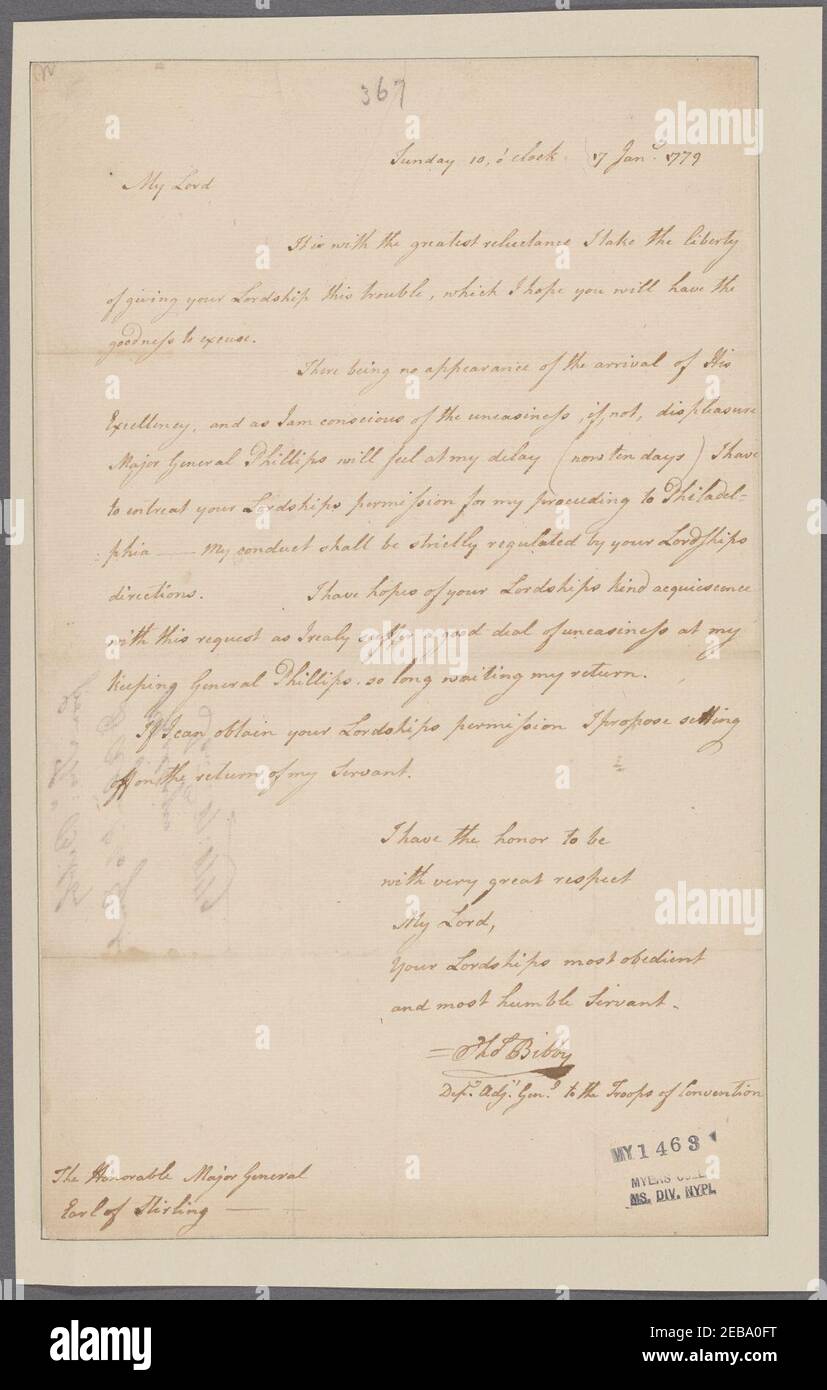 367
Sunday 10, o'clock 17 Jan.y 1779
My Lord
It is with the greatest reluctance I take the liberty
of giving your Lordship this trouble, which I hope you will have the
goodness to excuse.
There being no appearance of the arrival of His
Excellency, and as I am conscious of the uneasiness, if, not, displeasure
Major General Phillips will feel at my delay (now ten days) I have
to entreat your Lordships permission for my proceeding to Philadel-
:phia — My conduct shall be strictly regulated by your Lordships
directions. I have hopes of your Lordships kind acquiescence
with this request as I realy suffer a good deal of uneasiness at my
keeping General Phillips so long waiting my return.
If I can obtain your Lordships permission I propose setting
off on the return of my Servant.
I have the honor to be
with very great respect
My Lord,
Your Lordships most obedient
and most humble Servant.
Thos Bibby
Depy. Adjt. Genl. to the Troops of Convention
The Honorable Major General
Earl of Stirling
MY 1463
MYERS COLL
MS. DIV. NYPL
alamy
alamy
alamy
alamy
Image ID: 2EBA0FT
www.alamy.com